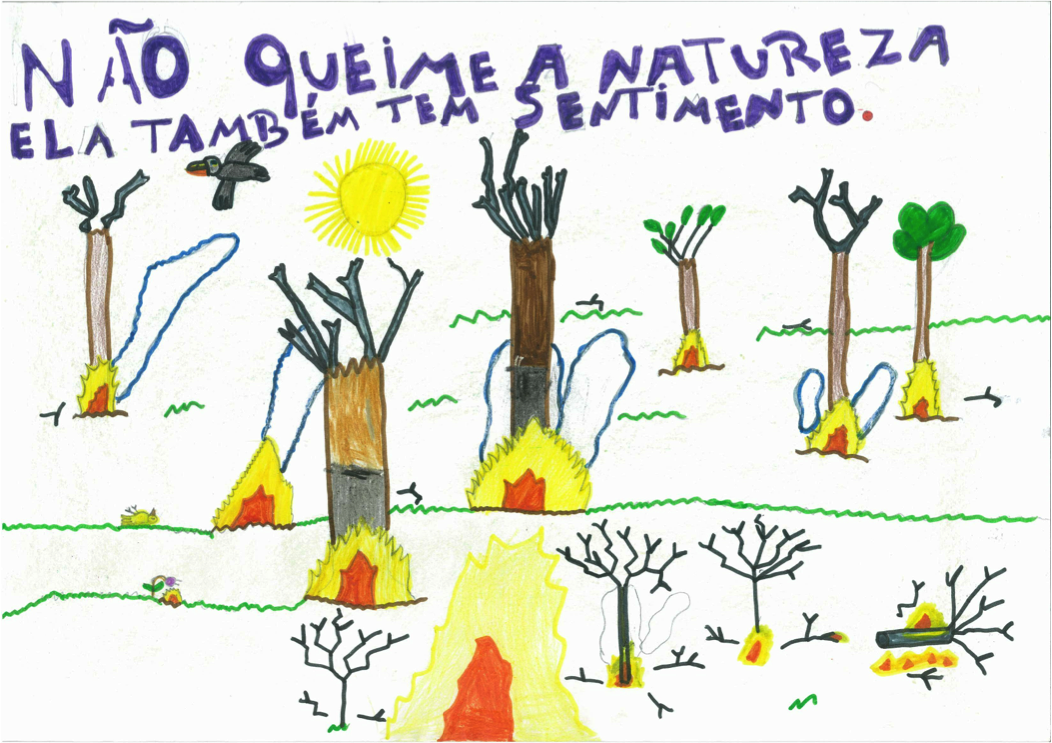 NÃO QUEIME A NATUREZA
ELA TAMBÉM TEM SENTIMENTO.